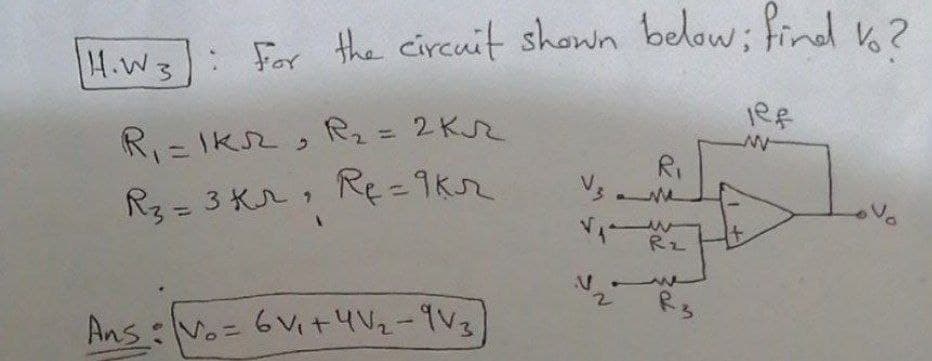 H.W 3 : For the circuit shown below; find Vo?
R1 = 1KΩ , R2 = 2KΩ
R3 = 3KΩ , Rf = 9KΩ
Rf
R1
V3
-
Vo
V1
R2
+
V2
R3
Ans: Vo = 6V1 + 4V2 - 9V3